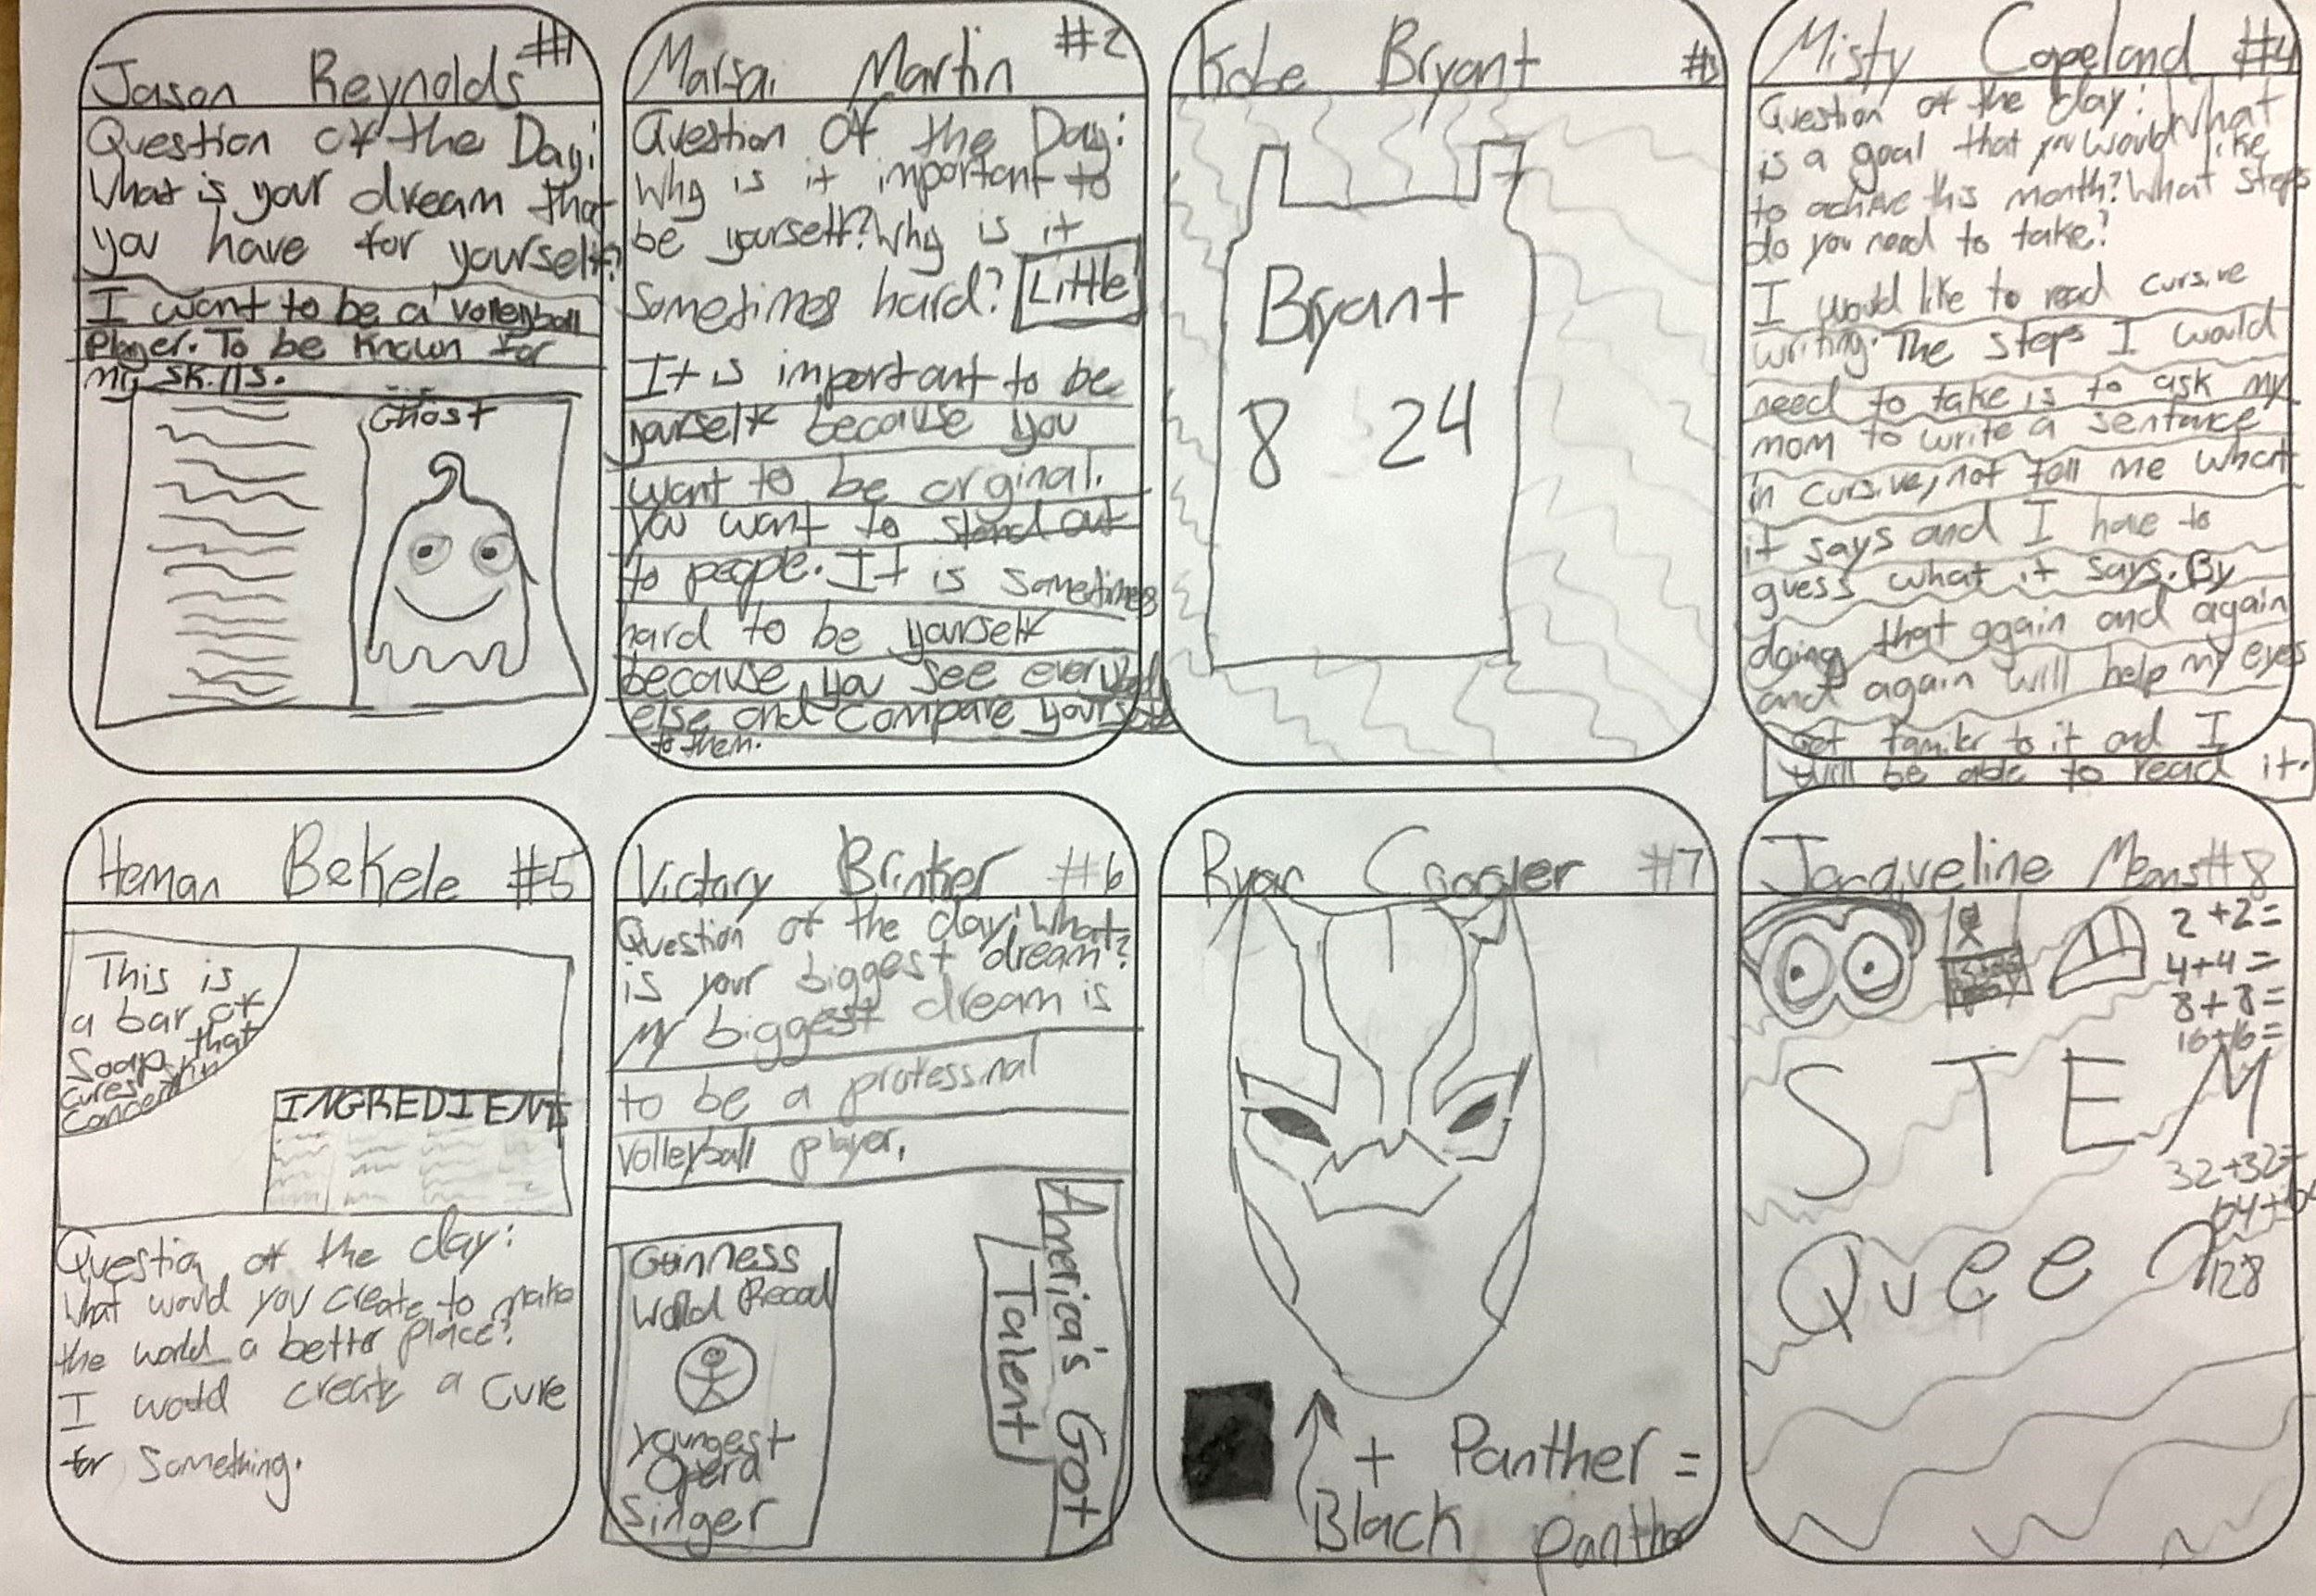 Jason Reynolds #1
Question of the Day:
What is your dream that
you have for yourself?
I want to be a volleyball
player. To be known for
my skills.
Ghost
Marsai Martin #2
Question Of the Day:
Why is it important to
be yourself? Why is it
sometimes hard? Little
It is important to be
yourself because you
want to be orginal.
You want to stand out
to people. It is sometimes
hard to be yourself
because you see everybody
else and compare yourself
to them.
Kobe Bryant #3
Bryant
8 24
Misty Copeland #4
Question of the day: What
is a goal that you would like
to achive this month? What steps
do you need to take?
I would like to read cursive
writing. The steps I would
need to take is to ask my
mom to write a sentence
in cursive, not tell me what
it says and I have to
guess what it says. By
doing that again and again
and again will help my eyes
get familer to it and I
will be able to read it.
Heman Bekele #5
This is
a bar of
Soap that
cures skin
concer
INGREDIENTS
Question of the day:
What would you create to make
the world a better place?
I would create a cure
for something.
Victory Brinker #6
Question of the day: What
is your biggest dream?
My biggest dream is
to be a professinal
volleyball player.
Guinness
World Recod
youngest
Opera
Singer
America's Got
Talent
Ryan Coogler #7
+ Panther =
Black panther
Jacqueline Means #8
2+2=
4+4=
8+8=
16+16=
STEM
32+32=
64+64
Queen
128